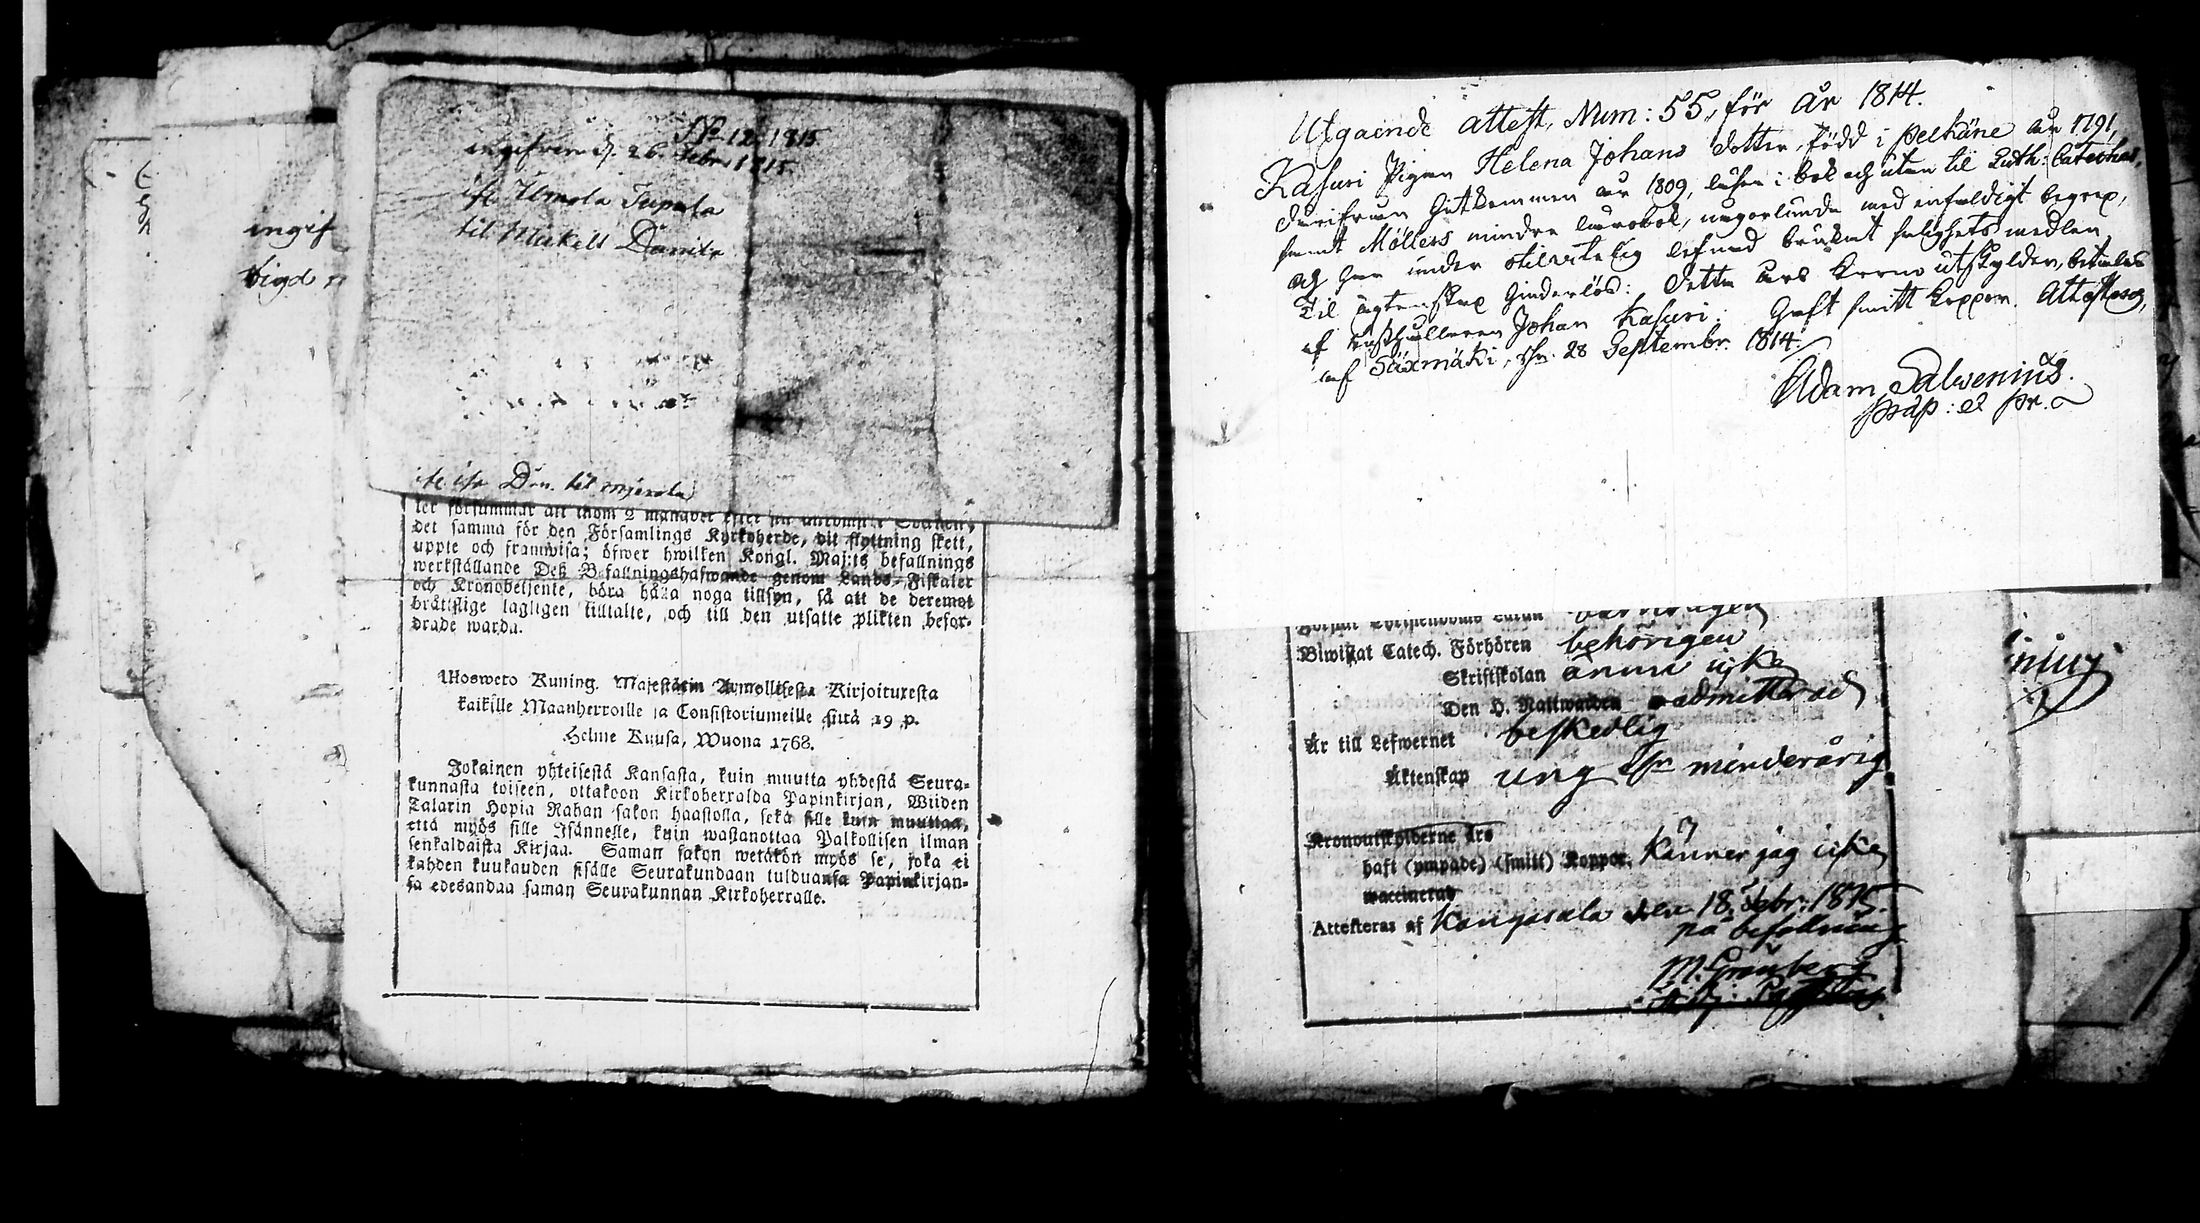 ingif
bigd
No 12 1815
ingifven d. 26. Febr. 1815.
fr.
til Mickels Danila
Dn. til
det samma för den Församlings Kyrkoherde, dit flyttning skett,
uppte och framwisa; öfwer hwilken Kongl. Maj:ts befallnings
werkställande Deß Befallningshafwande genom Lands-Fiskaler
och Kronobetjente, böra hålla noga tillsyn, så att de deremot
bråttslige lagligen tilltalte, och till den utsatte plikten befor-
drade warda.
Uloswето Kuning. Majestätin Armollisesta Kirjoituxesta
kaikille Maanherroille ja Consistoriumeille siitä 19 p.
Helme Kuusa, Wuona 1768.
Jokainen yhteisestä Kansasta, kuin muutta yhdestä Seura-
kunnasta toiseen, ottakoon Kirkoherralda Papinkirjan, Wiiden
Talarin Hopia Rahan sakon haastolla, sekä sille kuin muuttaa,
että myös sille Isännelle, kuin wastanottaa Palkollisen ilman
senkaldaista Kirjaa. Saman sakon wetäkön myös se, joka ei
kahden kuukauden sisälle Seurakundaan tulduansa Papinkirjan-
sa edesandaa saman Seurakunnan Kirkoherralle.
Utgaende attest, Num: 55, för år 1814.
Kasuri Pigan Helena Johans dotter, född i Pelkäne år 1791,
därifrån hitkommen år 1809, läser i bok och utan til Luth: Cateches,
samt Möllers mindre lärobok, någorlunda med enfaldigt begrep,
och har under otilvitelig lefnad brukat salighets medlen,
til ägtenskap hinderlös: detta års krono utskylder, betalas
af Johan Kasuri: Haft smitt koppor. Attesteras,
af Säxmäki, d. 28 Septembr. 1814.
Adam Salwenius.
Präp: et Pr.
Biwistat Catech. Förhören behörigen
Skriftskolan ännu icke
Den H. Nattwarden admitterad
Är till Lefwernet beskedlig
Äktenskap ung och minderårig
Kronoutskylderne års
haft (ympade) (smitt) Koppor. Känner jag icke
waccinerad
Attesteras af Kangasala den 18 Febr: 1815.
på befallning
M. Grönberg